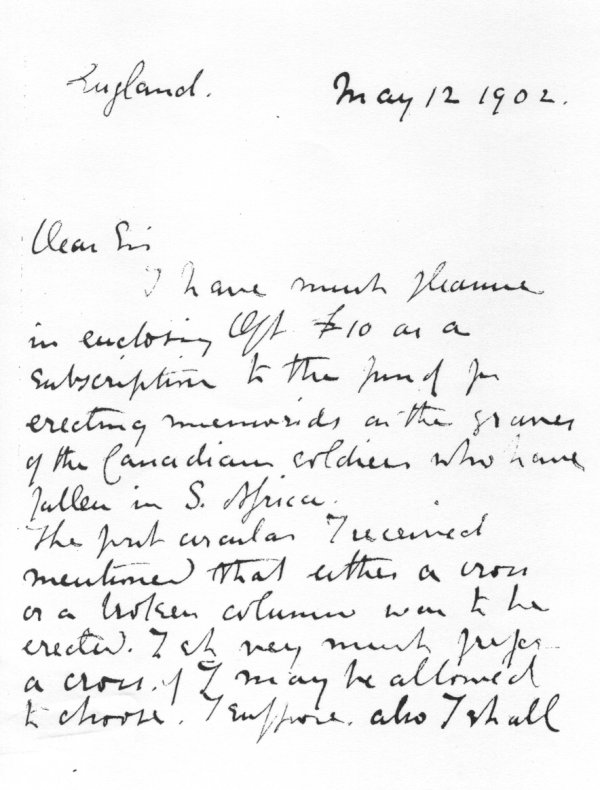 England.
May 12 1902.
Dear Sir
I have much pleasure
in enclosing £10 as a
subscription to the fund for
erecting memorials on the graves
of the Canadian soldiers who have
fallen in S. Africa.
The first circular I received
mentioned that either a cross
or a broken column was to be
erected. I sh very much prefer
a cross. if I may be allowed
to choose. I suppose. also I shall